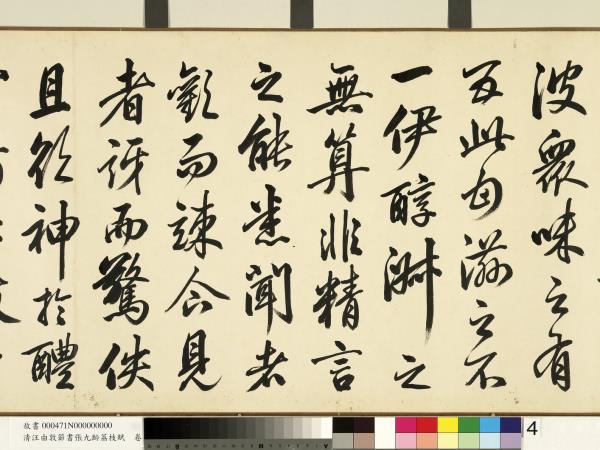 彼眾味之有
五此甘滋之不
一伊醇淑之
無算非精言
之能悉聞者
歡而竦企見
者訝而驚佚
且欲神於醴
故書 000471N000000000
清汪由敦節書張九齡荔枝賦 卷
4